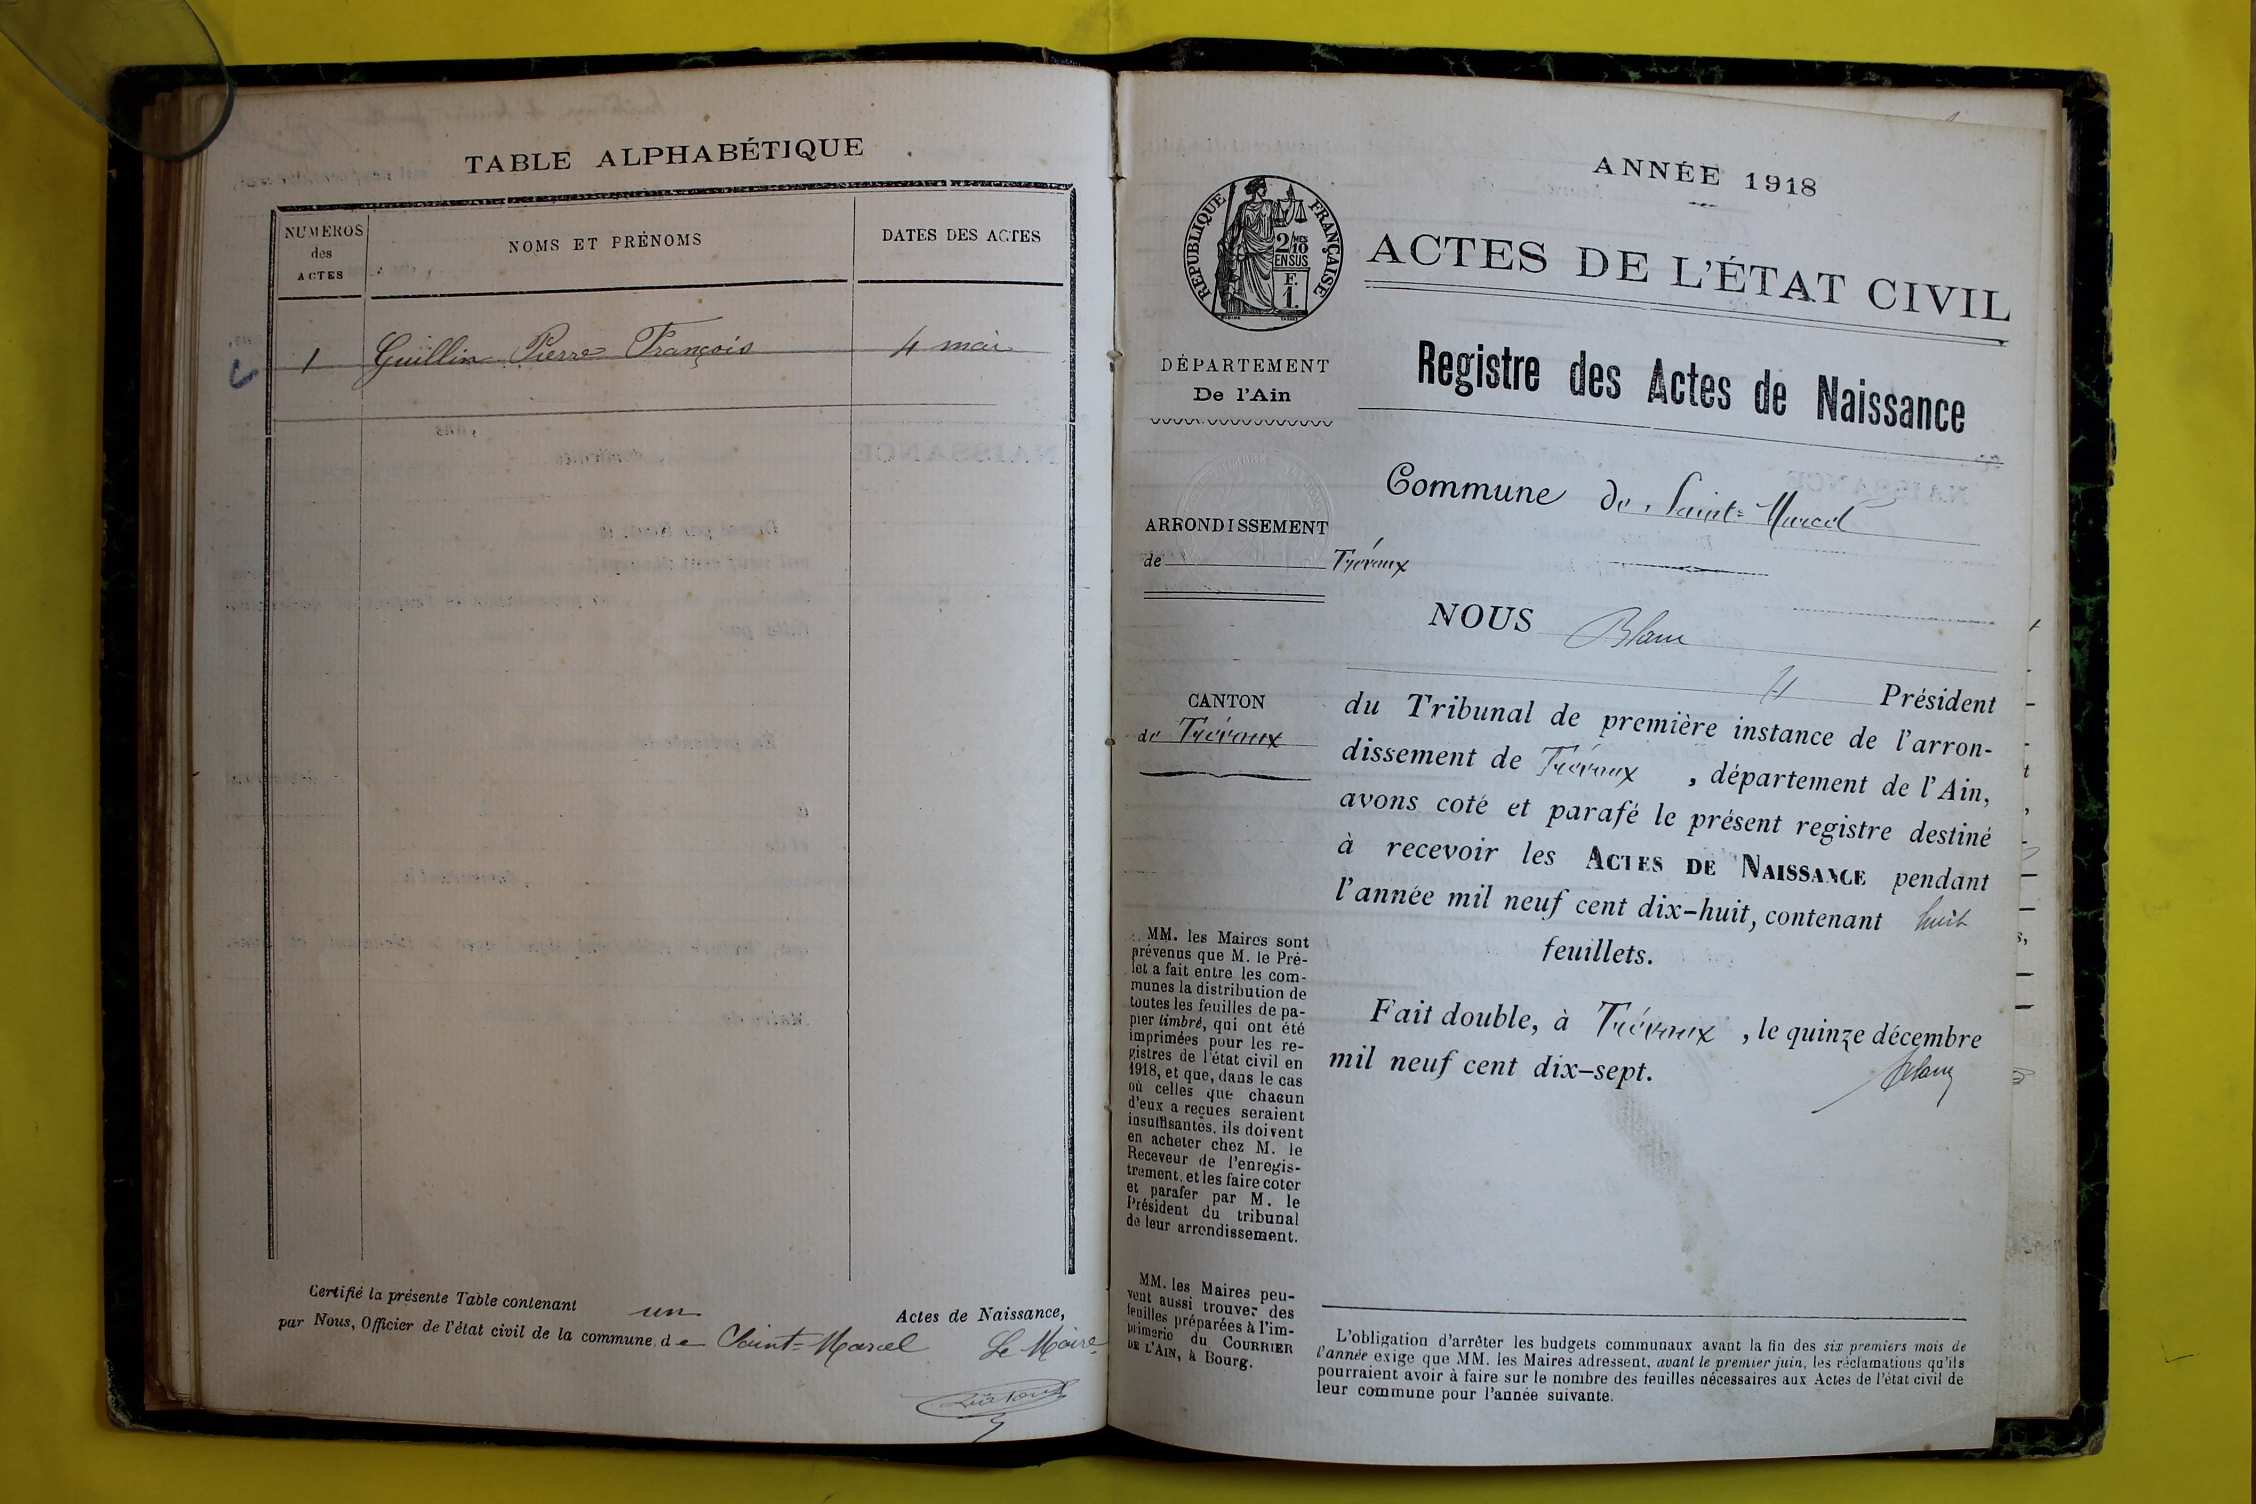 TABLE ALPHABÉTIQUE
NUMEROS
des
ACTES
NOMS ET PRÉNOMS
DATES DES ACTES
1 Guillin Pierre François 4 mai
Certifié la présente Table contenant un Actes de Naissance,
par Nous, Officier de l'état civil de la commune de Saint-Marcel Le Maire
ANNÉE 1918
RÉPUBLIQUE FRANÇAISE
2/10 MES
EN SUS
F.
1.
ACTES DE L'ÉTAT CIVIL
DÉPARTEMENT
De l'Ain
Registre des Actes de Naissance
Commune de Saint-Marcel
ARRONDISSEMENT
de Trévoux
NOUS Blanc
CANTON
de Trévoux
Président
du Tribunal de première instance de l'arron-
dissement de Trévoux, département de l'Ain,
avons coté et parafé le présent registre destiné
à recevoir les ACTES DE NAISSANCE pendant
l'année mil neuf cent dix-huit, contenant huit
feuillets.
Fait double, à Trévoux, le quinze décembre
mil neuf cent dix-sept.
Blanc
MM. les Maires sont
prévenus que M. le Pré-
fet a fait entre les com-
munes la distribution de
toutes les feuilles de pa-
pier timbré, qui ont été
imprimées pour les re-
gistres de l'état civil en
1918, et que, dans le cas
où celles que chacun
d'eux a reçues seraient
insuffisantes, ils doivent
en acheter chez M. le
Receveur de l'enregis-
trement, et les faire coter
et parafer par M. le
Président du tribunal
de leur arrondissement.
MM. les Maires peu-
vent aussi trouver des
feuilles préparées à l'im-
primerie du COURRIER
DE L'AIN, à Bourg.
L'obligation d'arrêter les budgets communaux avant la fin des six premiers mois de
l'année exige que MM. les Maires adressent, avant le premier juin, les réclamations qu'ils
pourraient avoir à faire sur le nombre des feuilles nécessaires aux Actes de l'état civil de
leur commune pour l'année suivante.